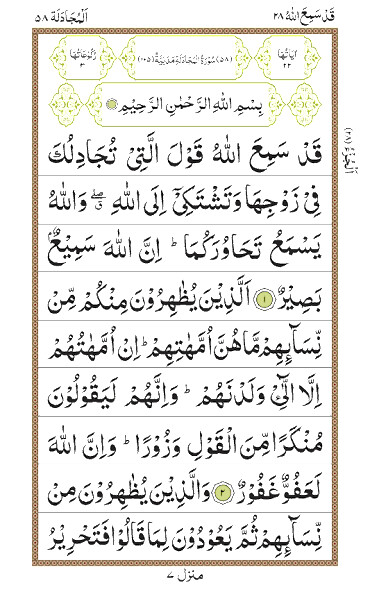 قَدْ سَمِعَ اللّٰهُ ٢٨
اَلْمُجَادَلَة ٥٨
اٰيَاتُهَا ٢٢
(٥٨) سُوْرَةُ الْمُجَادَلَةِ مَدَنِيَّةٌ (١٠٥)
رُكُوْعَاتُهَا ٣
بِسْمِ اللّٰهِ الرَّحْمٰنِ الرَّحِيْمِ
اَلْجُزْءُ (٢٨)
قَدْ سَمِعَ اللّٰهُ قَوْلَ الَّتِيْ تُجَادِلُكَ
فِيْ زَوْجِهَا وَتَشْتَكِيْٓ اِلَى اللّٰهِ ۖ وَاللّٰهُ
يَسْمَعُ تَحَاوُرَكُمَا ؕ اِنَّ اللّٰهَ سَمِيْعٌۢ
بَصِيْرٌ ١ اَلَّذِيْنَ يُظٰهِرُوْنَ مِنْكُمْ مِّنْ
نِّسَآئِهِمْ مَّا هُنَّ اُمَّهٰتِهِمْ ؕ اِنْ اُمَّهٰتُهُمْ
اِلَّا الّٰٓـِٔيْ وَلَدْنَهُمْ ؕ وَاِنَّهُمْ لَيَقُوْلُوْنَ
مُنْكَرًا مِّنَ الْقَوْلِ وَزُوْرًا ؕ وَاِنَّ اللّٰهَ
لَعَفُوٌّ غَفُوْرٌ ٢ وَالَّذِيْنَ يُظٰهِرُوْنَ مِنْ
نِّسَآئِهِمْ ثُمَّ يَعُوْدُوْنَ لِمَا قَالُوْا فَتَحْرِيْرُ
منزل ٧